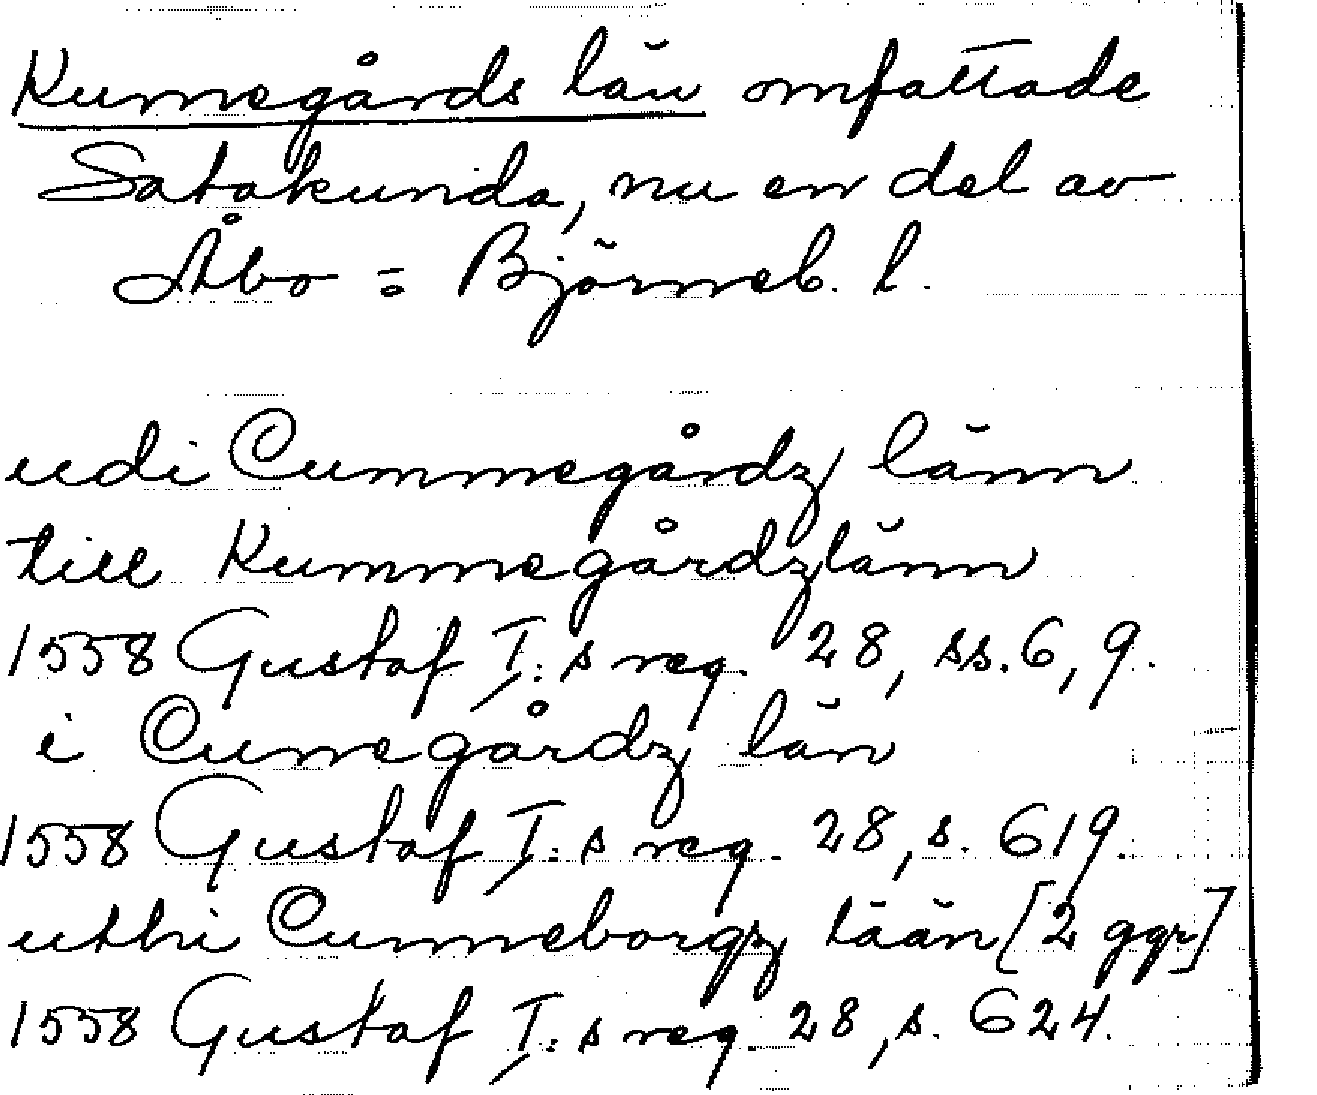 Kumegårds län omfattade
Satakunda, nu en del av
Åbo = Björneb. l.
udi Cummegårdz länn
till Kummegårdzlänn
1558 Gustaf I:s reg. 28, ss. 6, 9.
i Cumegårdz län
1558 Gustaf I:s reg. 28, s. 619.
uthi Cumeborgz lään [2 ggr]
1558 Gustaf I:s reg. 28, s. 624.